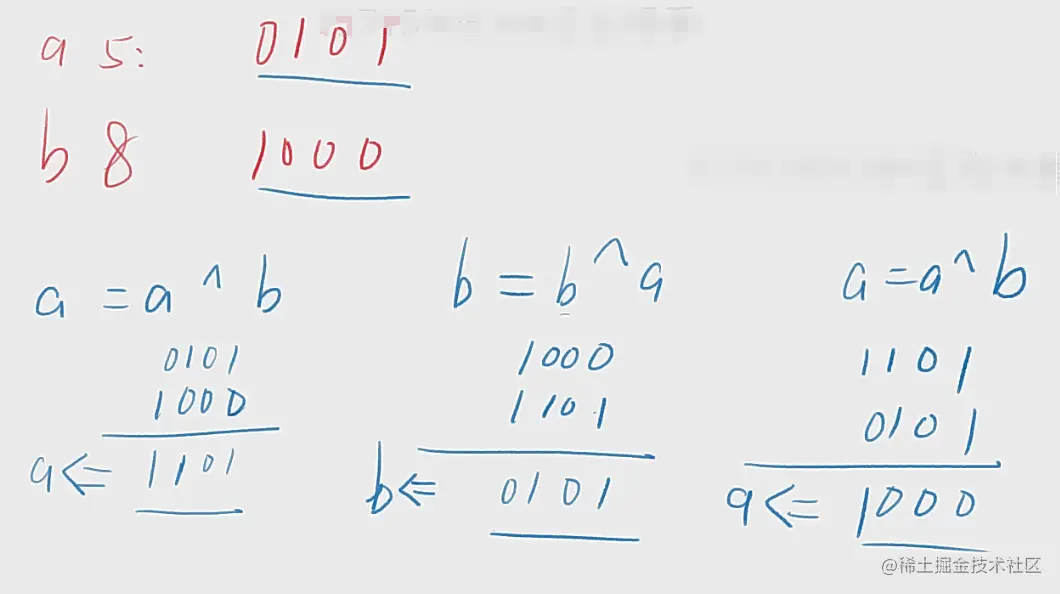 a 5: 0101
b 8 1000
a = a ^ b
0101
1000
a <= 1101
b = b ^ a
1000
1101
b <= 0101
a = a ^ b
1101
0101
a <= 1000
@稀土掘金技术社区